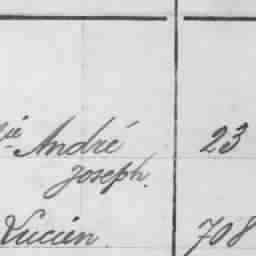 ie André 23
Joseph.
Lucien 708